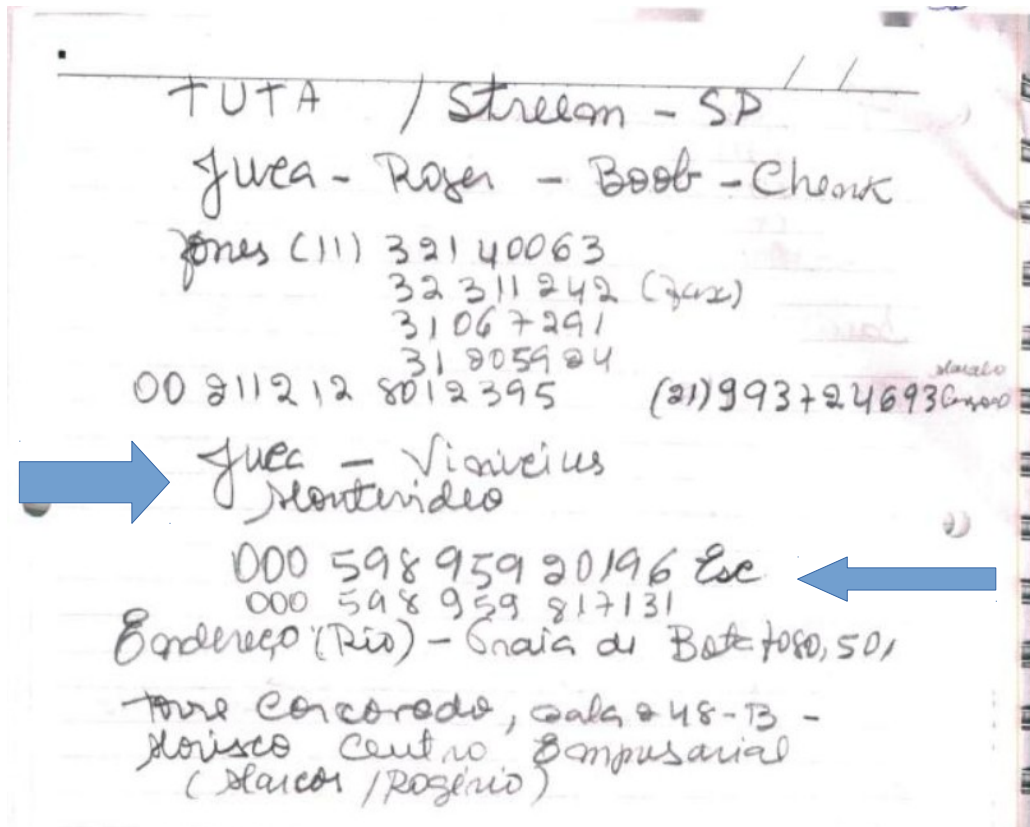 / /
TUTA / Streem - SP
Juca - Roger - Boob - Cheonk
fones (11) 32140063
32311242 (fax)
31067291
31205924
00 211212 80122395
(21) 993724693
Juca - Vinicius
Montevideo
000 598 959 20196 Esc
000 598 959 817131
Endereço (Rio) - Praia de Botafogo, 501
Torre Corcovado, sala 248-B -
Morisco Centro Empresarial
(Marcos / Rogério)